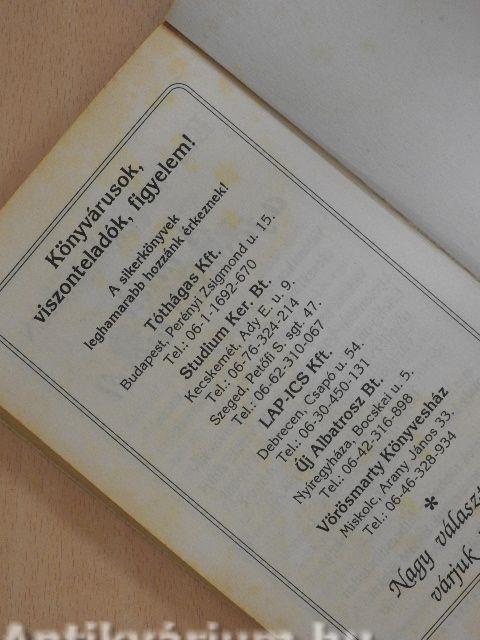 Könyvárusok,
viszonteladók, figyelem!
A sikerkönyvek
leghamarabb hozzánk érkeznek!
Tóthágas Kft.
Budapest, Perényi Zsigmond u. 15.
Tel.: 06-1-1692-670
Studium Ker. Bt.
Kecskemét, Ady E. u. 9.
Tel.: 06-76-324-214
Szeged, Petőfi S. sgt. 47.
Tel.: 06-62-310-067
LAP-ICS Kft.
Debrecen, Csapó u. 54.
Tel.: 06-30-450-131
Új Albatrosz Bt.
Nyíregyháza, Bocskai u. 5.
Tel.: 06-42-316-898
Vörösmarty Könyvesház
Miskolc, Arany János 33.
Tel.: 06-46-328-934
*
Nagy választ
várjuk
Antikvárium.hu